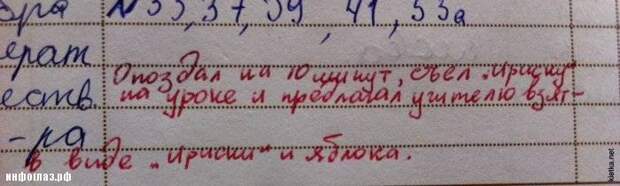 ра №35, 37, 39, 41, 53а
ерат
Опоздал на 10 минут, съел „Ириску"
еств. на уроке и предлагал учителю взят-
-ра
в виде „Ириски" и яблока.
инфоглаз.рф
kleika.net